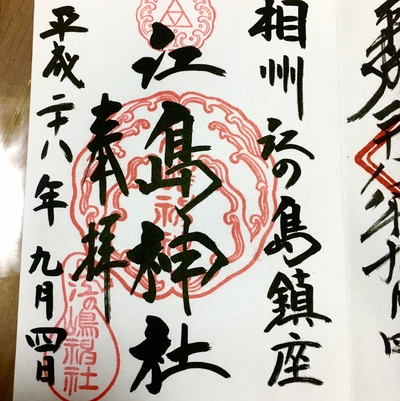 相州江の島鎮座
江島神社
奉拝
平成二十八年九月四日
江嶋神社